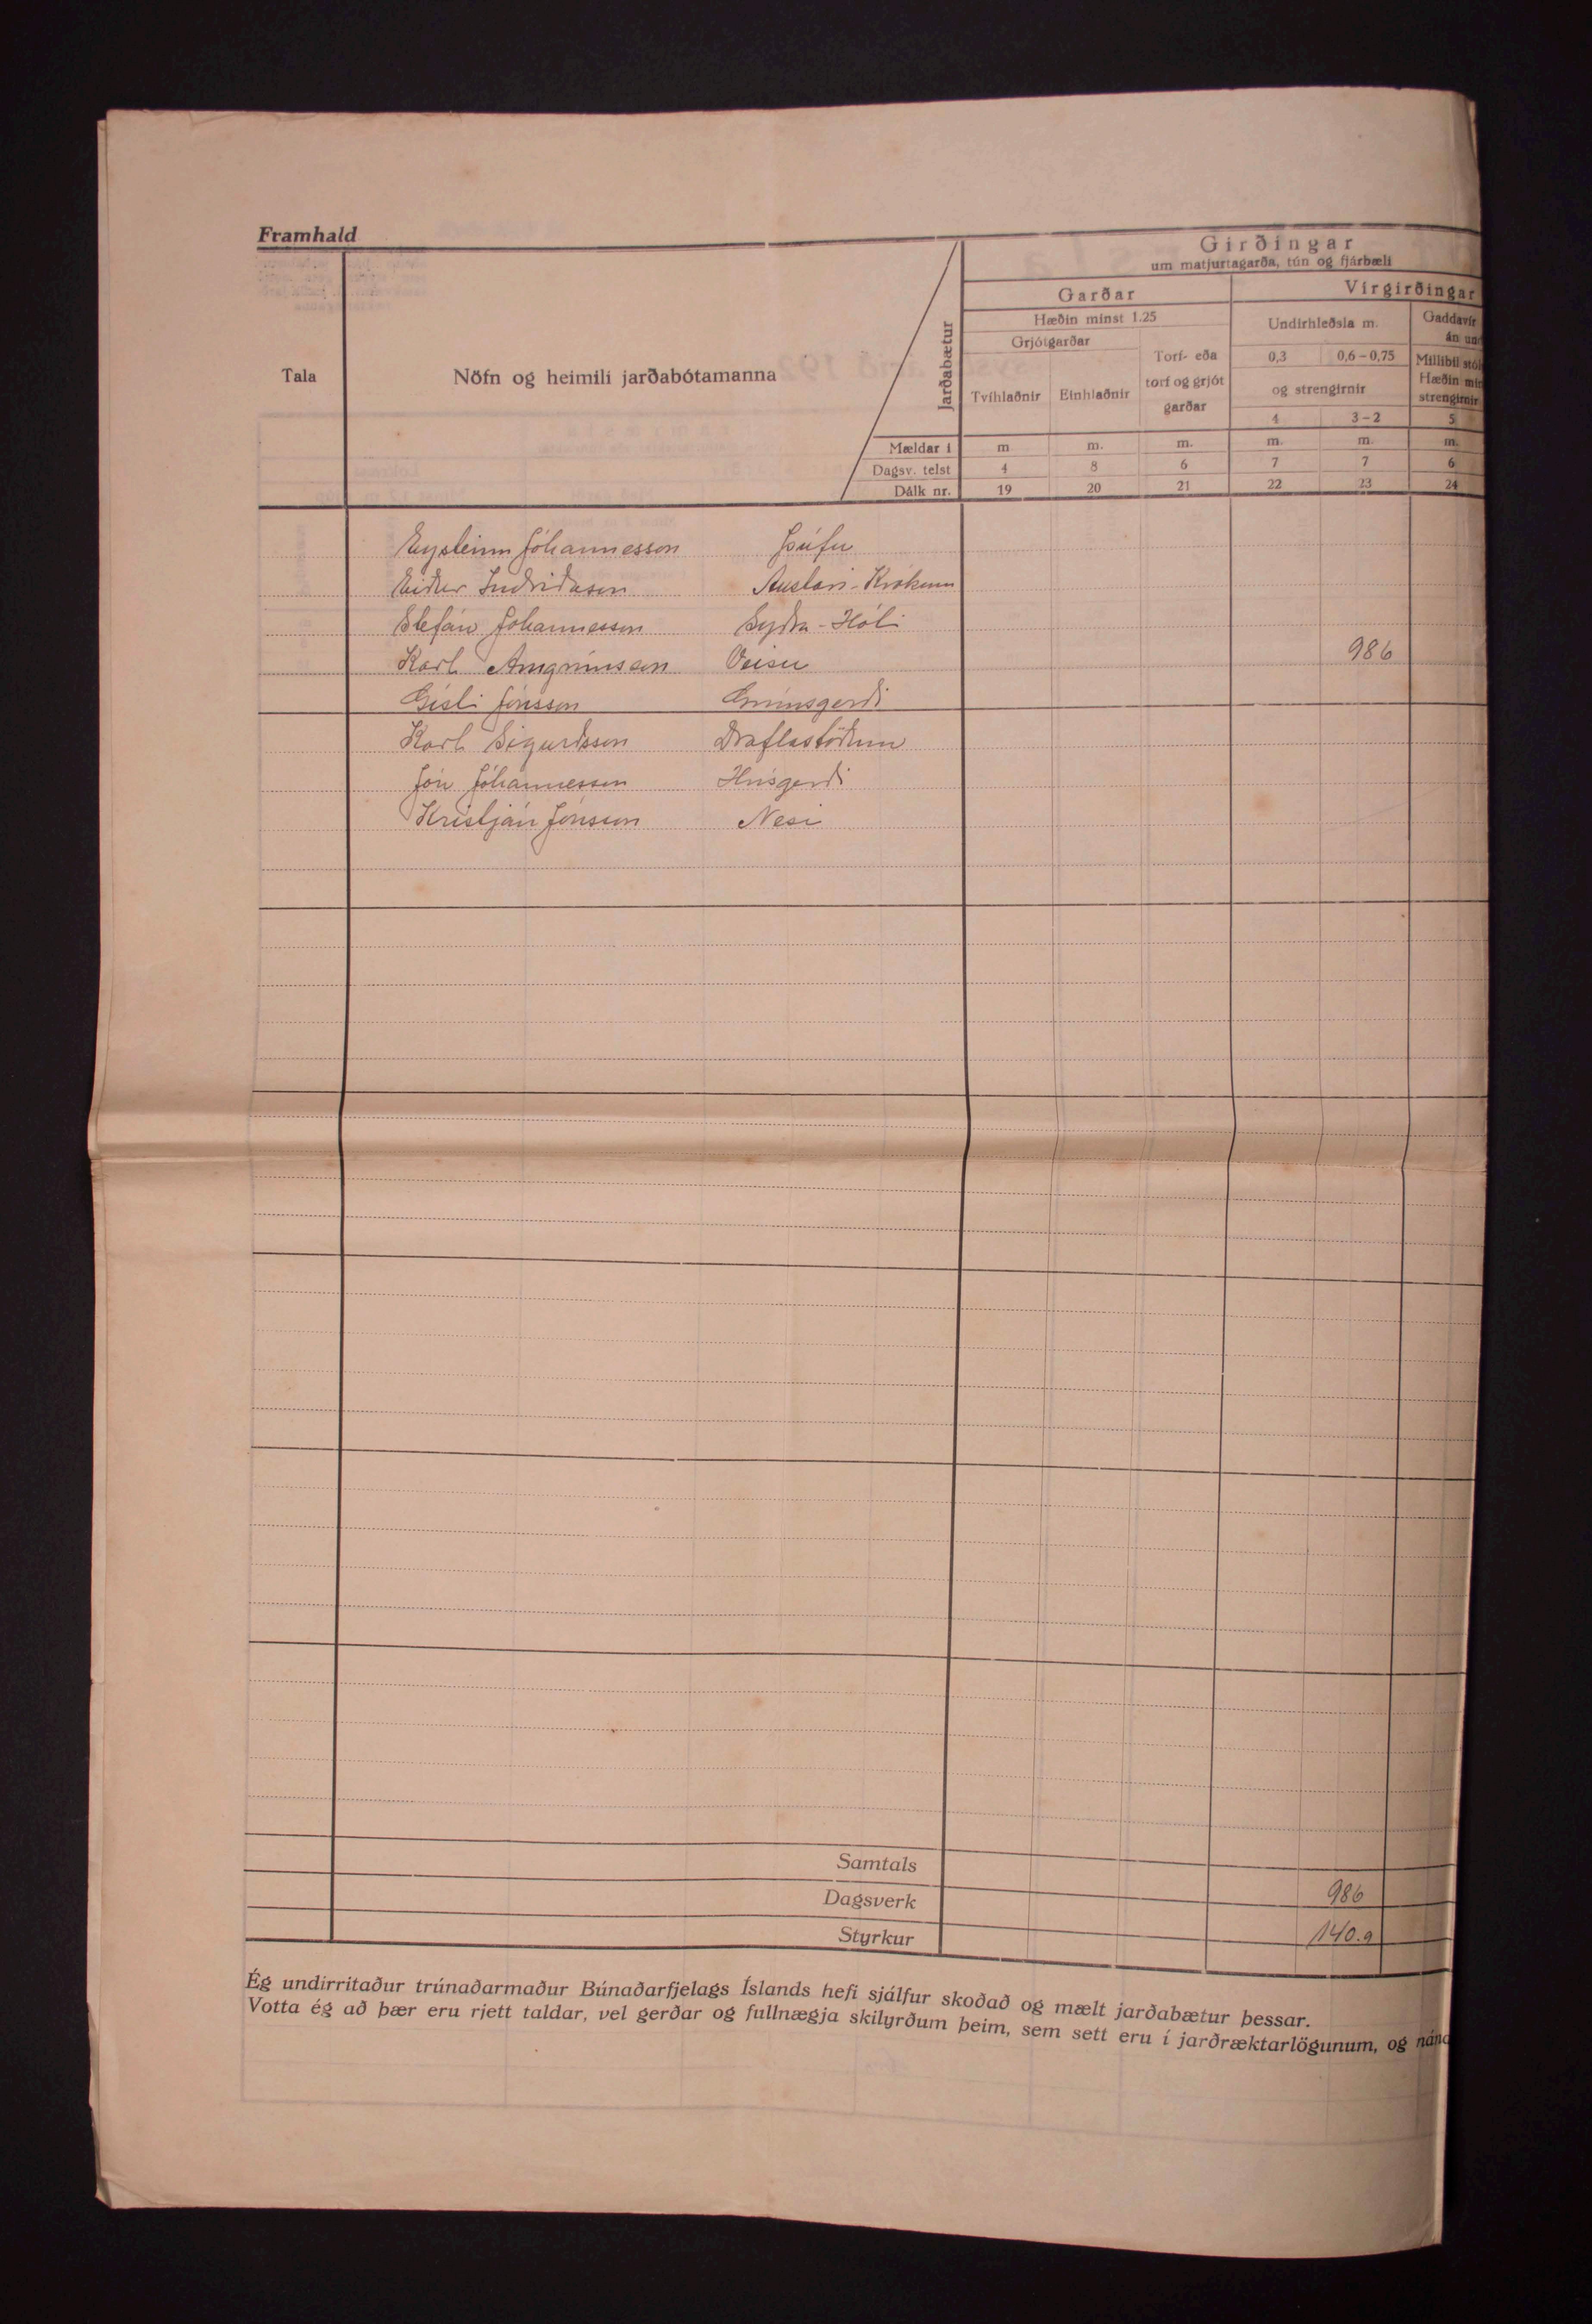 Framhald
Girðingar
um matjurtagarða, tún og fjárbæli
Garðar
Vírgirðingar
Hæðin minst 1.25
Undirhleðsla m.
Gaddavír
án und
Grjótgarðar
Torf- eða
torf og grjót
garðar
0,3
0,6–0,75
Millibil stól
Hæðin min
strengirnir
Tala
Nöfn og heimili jarðabótamanna
Jarðabætur
Tvíhlaðnir
Einhlaðnir
og strengirnir
4
3–2
5
Mældar í
m
m.
m.
m.
m.
m.
Dagsv. telst
4
8
6
7
7
6
Dálk nr.
19
20
21
22
23
24
Eysteinn Jóhannesson Þúfu
Eiður Indriðason Austari-Krókum
Stefán Jóhannesson Syðra-Hóli
Karl Arngrímsson Veisu 986
Gísli Jónsson Grímsgerði
Karl Sigurðsson Draflastöðum
Jón Jóhannesson Hrísgerði
Kristján Jónsson Nesi
Samtals
Dagsverk 986
Styrkur 140.9
Ég undirritaður trúnaðarmaður Búnaðarfjelags Íslands hefi sjálfur skoðað og mælt jarðabætur þessar.
Votta ég að þær eru rjett taldar, vel gerðar og fullnægja skilyrðum þeim, sem sett eru í jarðræktarlögunum, og nánd